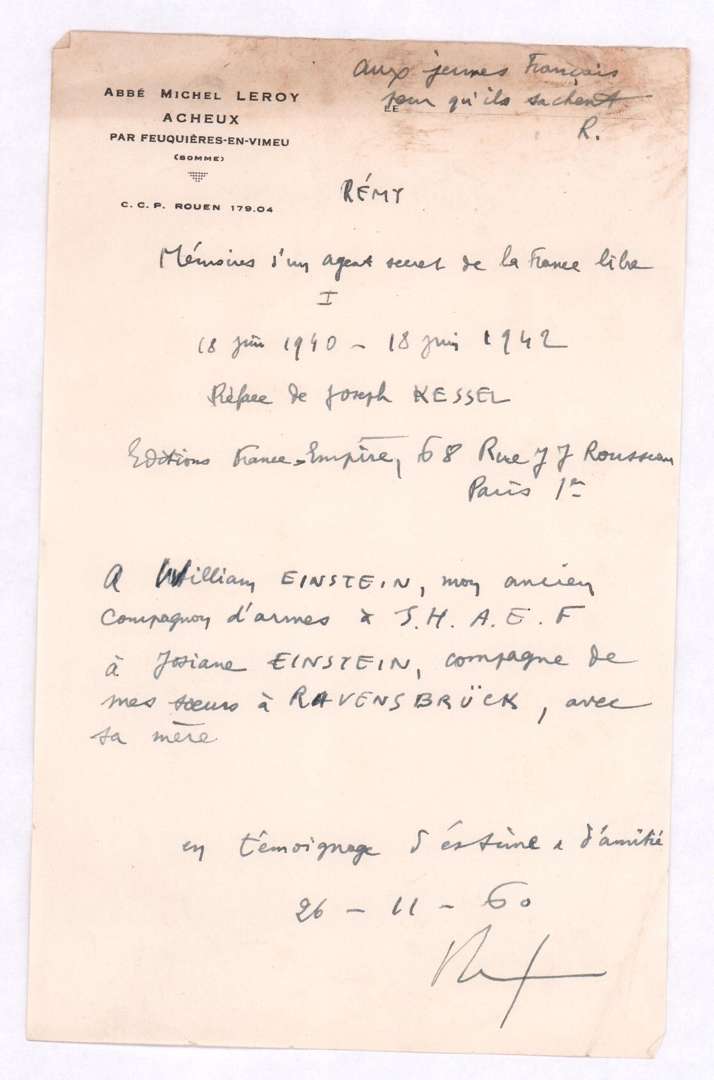 aux jeunes Français
pour qu'ils sachent
R.
ABBÉ MICHEL LEROY
ACHEUX
PAR FEUQUIÈRES-EN-VIMEU
(SOMME)
LE
C. C. P. ROUEN 179.04
RÉMY
Mémoires d'un agent secret de la France libre
I
18 juin 1940 - 18 juin 1942
Préface de Joseph KESSEL
Editions France-Empire, 68 Rue J J Rousseau
Paris 1er
A William EINSTEIN, mon ancien
compagnon d'armes à S.H.A.E.F
à Josiane EINSTEIN, compagne de
mes sœurs à RAVENSBRÜCK, avec
sa mère
en témoignage d'estime & d'amitié
26 - 11 - 60